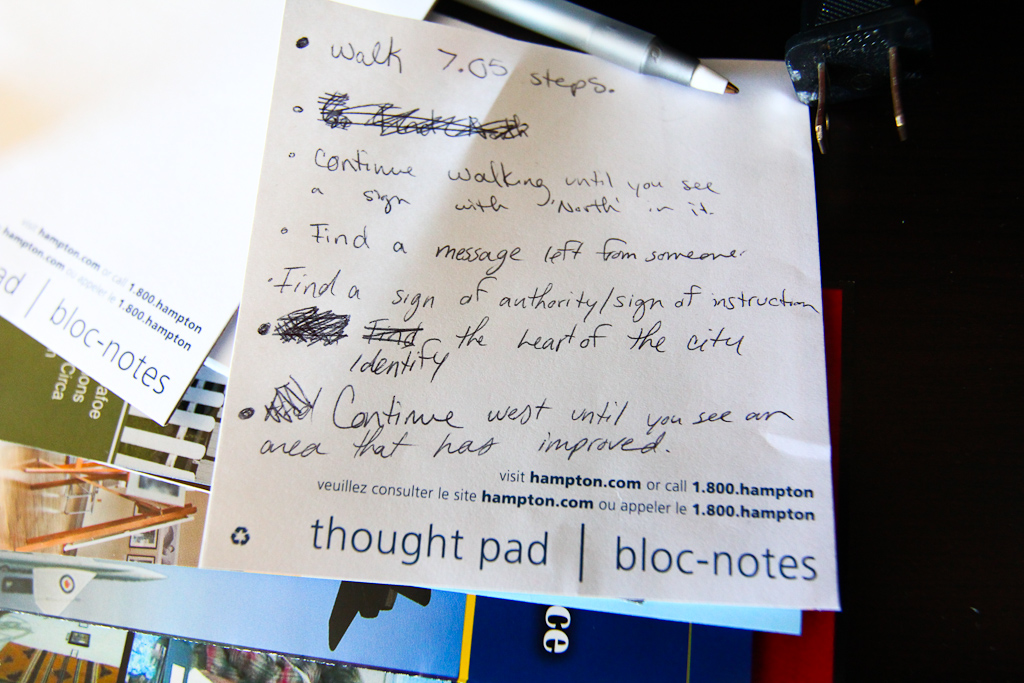 • Walk 7.05 steps.
•
• Continue walking until you see
a sign with 'North' in it.
• Find a message left from someone.
• Find a sign of authority/sign of instruction
• Find the heart of the city
identify
• Continue west until you see an
area that has improved.
visit hampton.com or call 1.800.hampton
veuillez consulter le site hampton.com ou appeler le 1.800.hampton
thought pad | bloc-notes
visit hampton.com or call 1.800.hampton
hampton.com ou appeler le 1.800.hampton
ad | bloc-notes
afoe
ons
Circa
ce